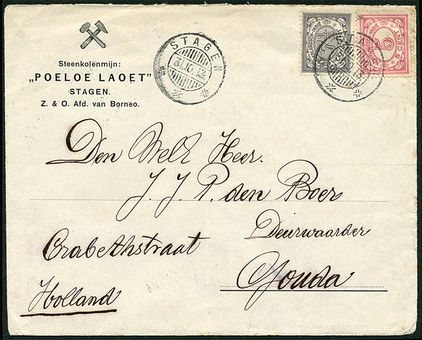 Steenkolenmijn:
„POELOE LAOET"
STAGEN.
Z. & O. Afd. van Borneo.
STAGEN
STAGEN
Den Welk Heer.
J. J. P. den Boer
Deurwaarder
Crabethstraat
Gouda
Holland